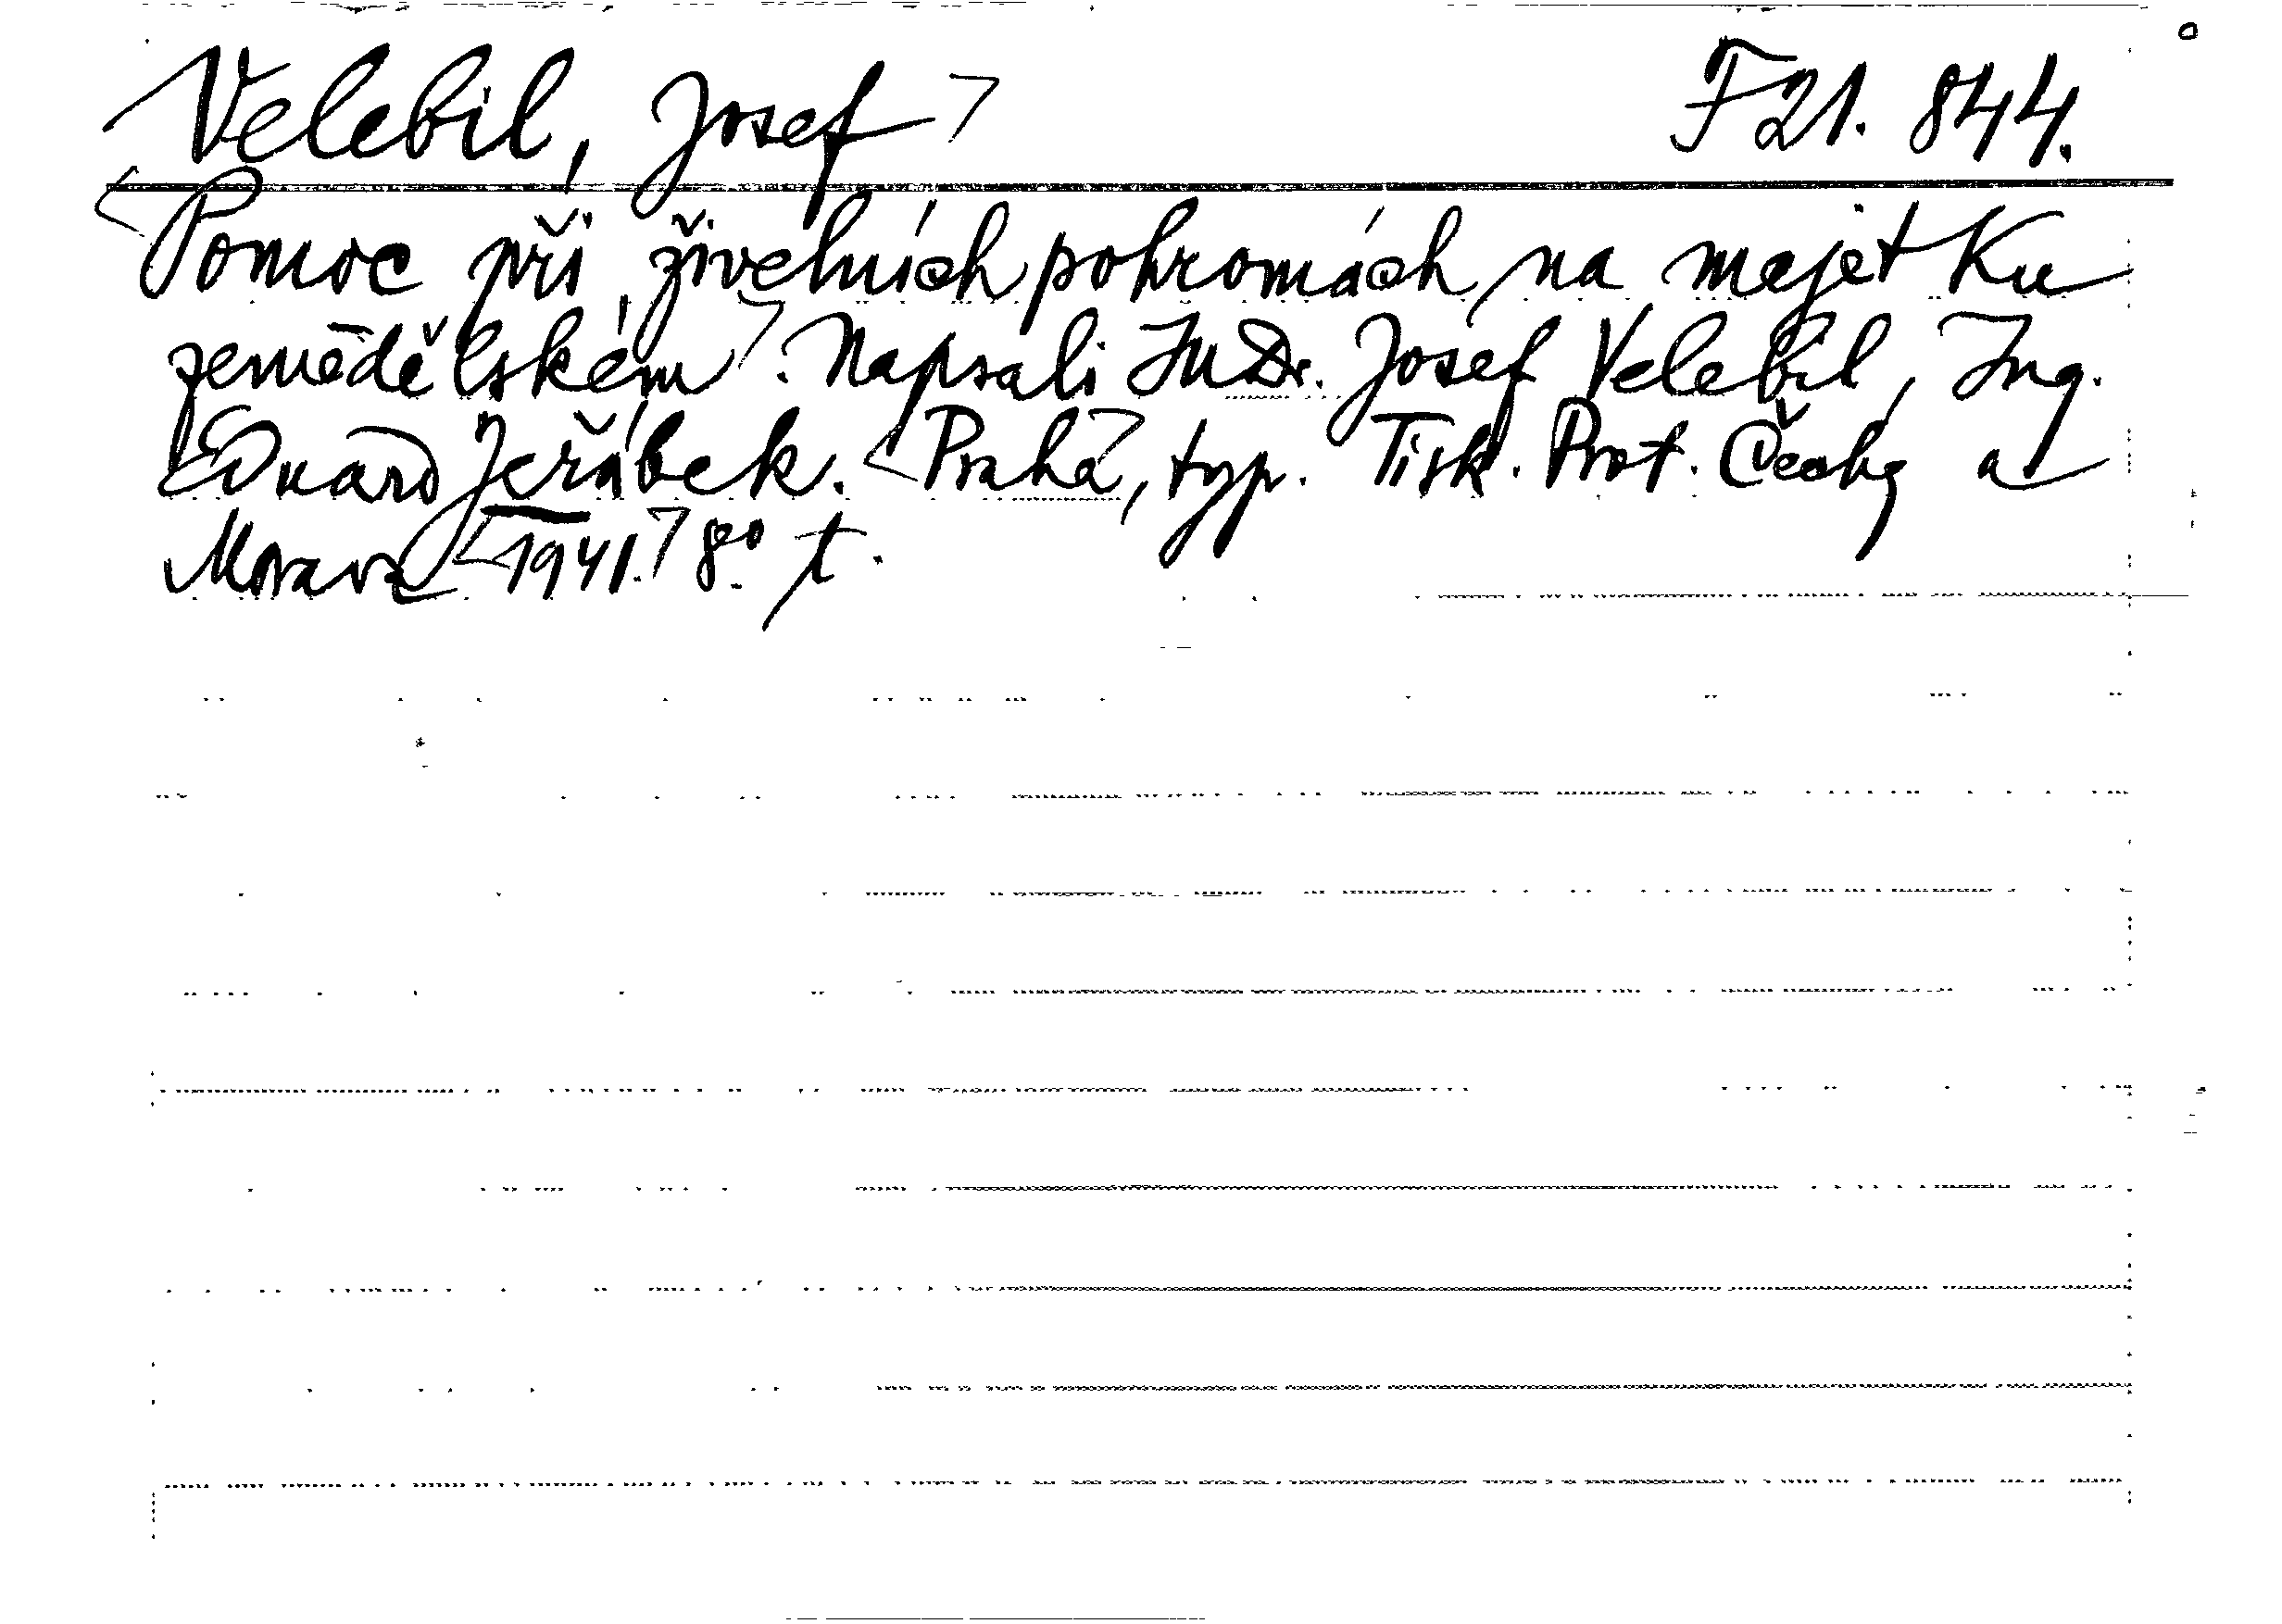 Velebil, Josef F 21. 844.
Pomoc při živelních pohromách na majetku
zemědělském. Napsali JUDr. Josef Velebil, Ing.
Eduard Jeřábek. Praha, typ. Tisk. Prot. Čechy a
Morava 1941. 8° t.